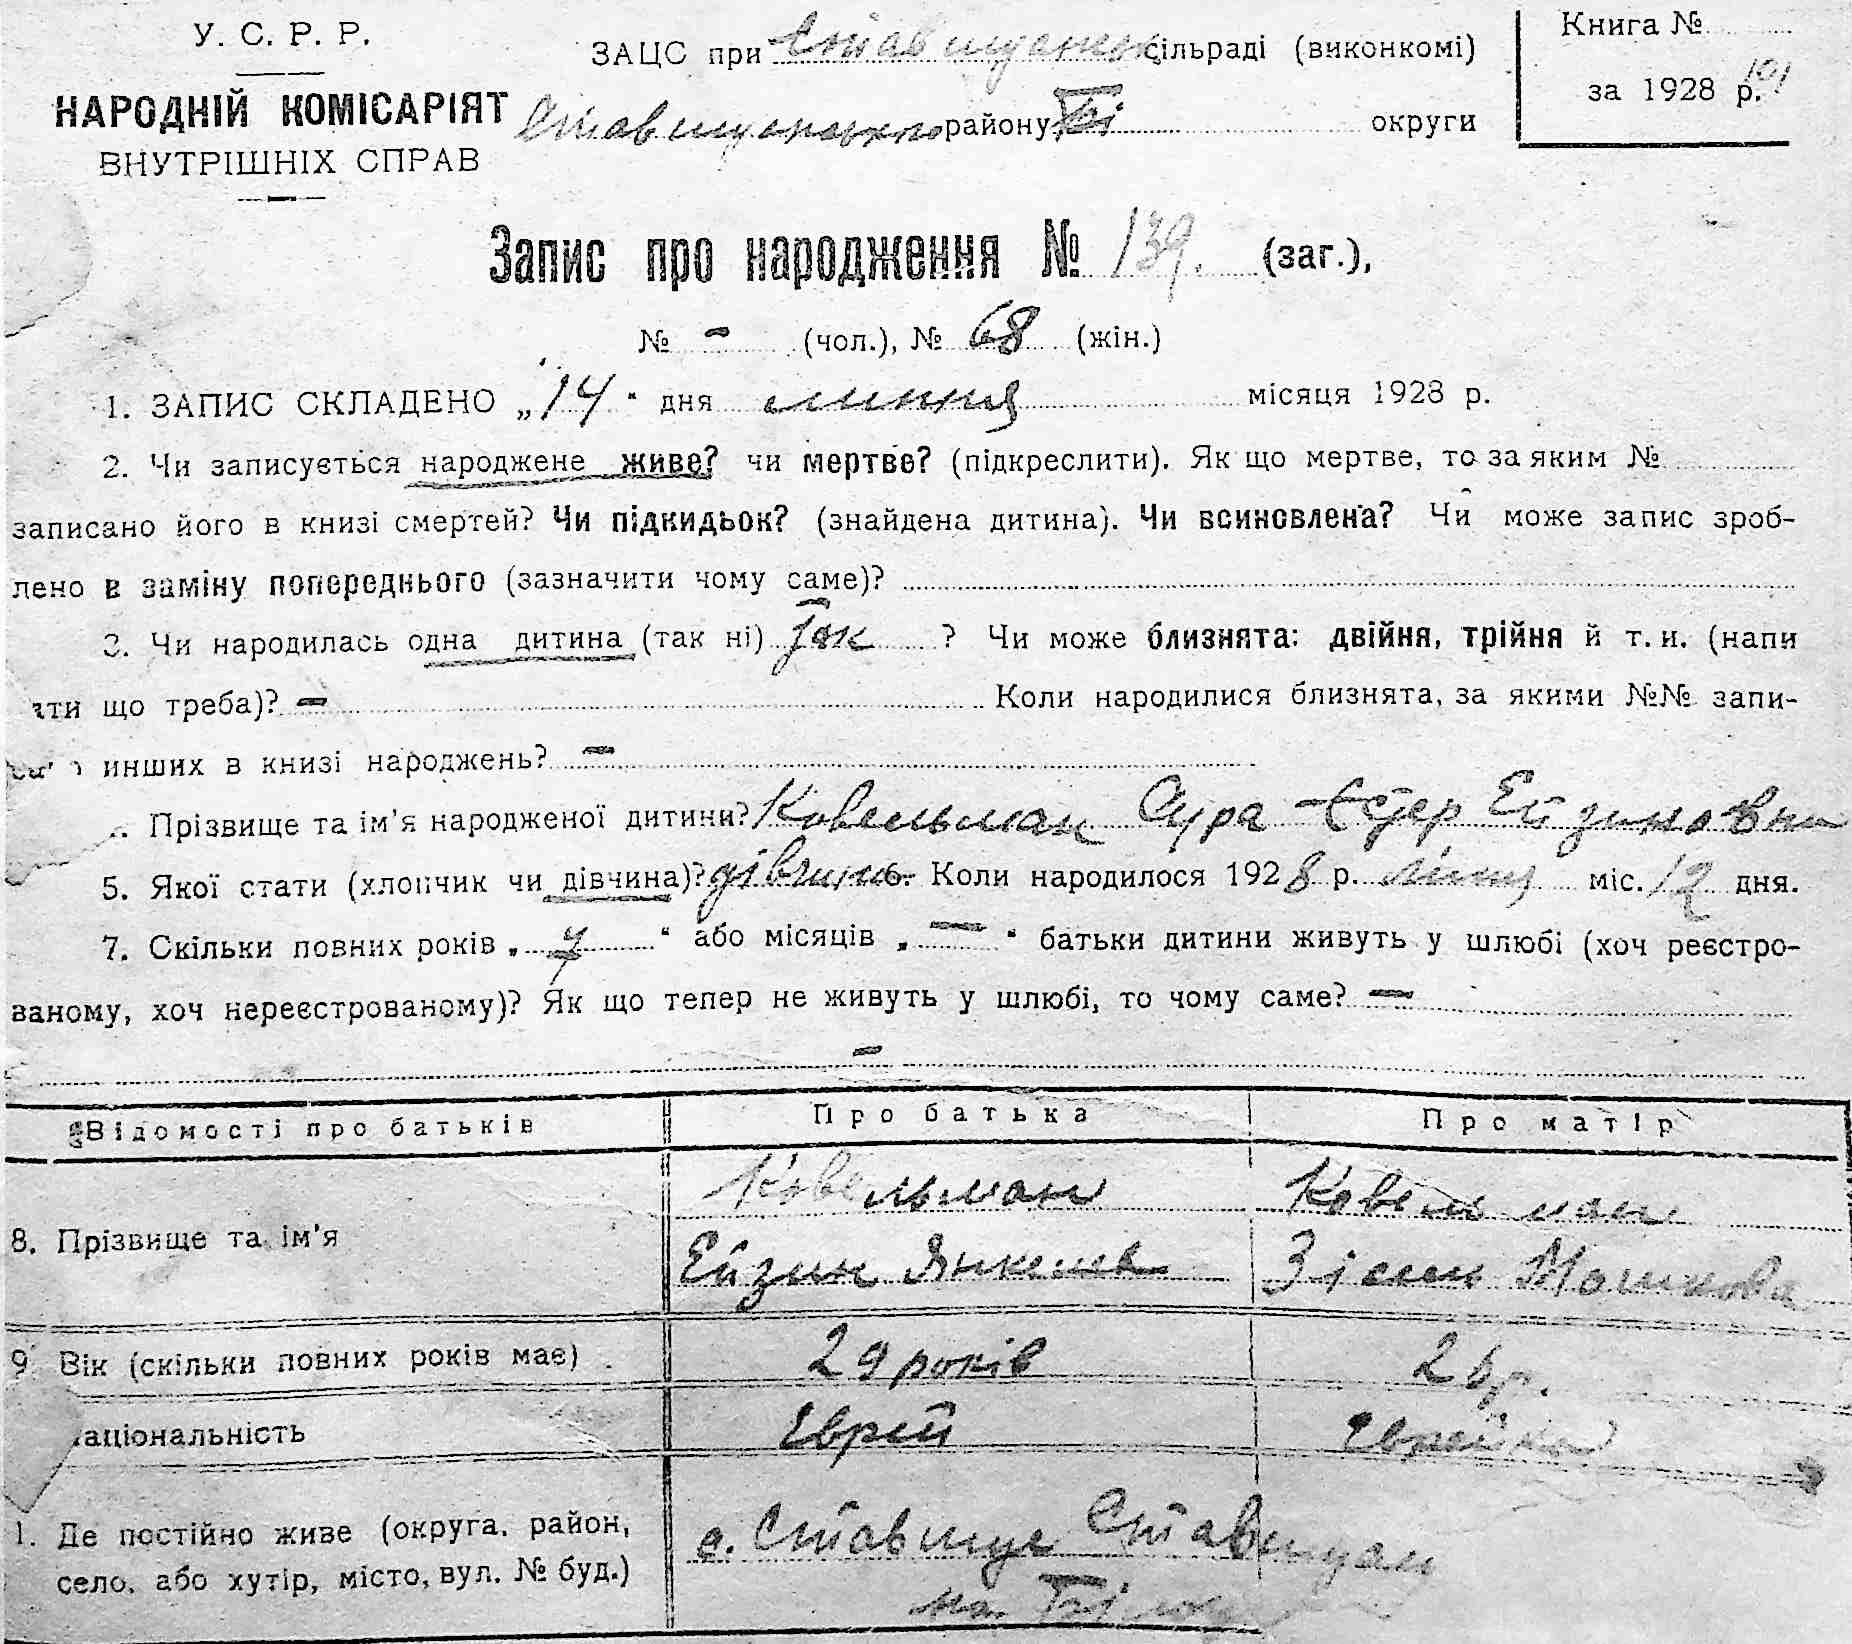 У. С. Р. Р.
НАРОДНІЙ КОМІСАРІЯТ
ВНУТРІШНІХ СПРАВ
ЗАЦС при Ставищанск сільраді (виконкомі)
Ставищанського району Бі округи
Книга №
за 1928 р.
Запис про народження № 139. (заг.),
№ - (чол.), № 68 (жін.)
1. ЗАПИС СКЛАДЕНО „14“ дня липня місяця 1928 р.
2. Чи записується народжене живе? чи мертве? (підкреслити). Як що мертве, то за яким №
записано його в книзі смертей? Чи підкидьок? (знайдена дитина). Чи всиновлена? Чи може запис зроб-
лено в заміну попереднього (зазначити чому саме)?
3. Чи народилась одна дитина (так ні) так ? Чи може близнята: двійня, трійня й т. и. (напи
ати що треба)? - Коли народилися близнята, за якими №№ запи-
инших в книзі народжень? -
Прізвище та ім'я народженої дитини? Ковельман Сура Естер Ейзиновна
5. Якої стати (хлопчик чи дівчина)? дівчина 6. Коли народилося 1928 р. липня міс. 12 дня.
7. Скільки повних років „ 7 “ або місяців „ - “ батьки дитини живуть у шлюбі (хоч реєстро-
ваному, хоч нереєстрованому)? Як що тепер не живуть у шлюбі, то чому саме? -
-
Відомості про батьків Про батька Про матір
8. Прізвище та ім'я
Ковельман Ковельман
Ейзин Янкелев Зісля Мошкова
9. Вік (скільки повних років має) 29 років 26 р.
аціональність Єврей Єврейка
1. Де постійно живе (округа, район, с. Ставище Ставищан
село, або хутір, місто, вул. № буд.)